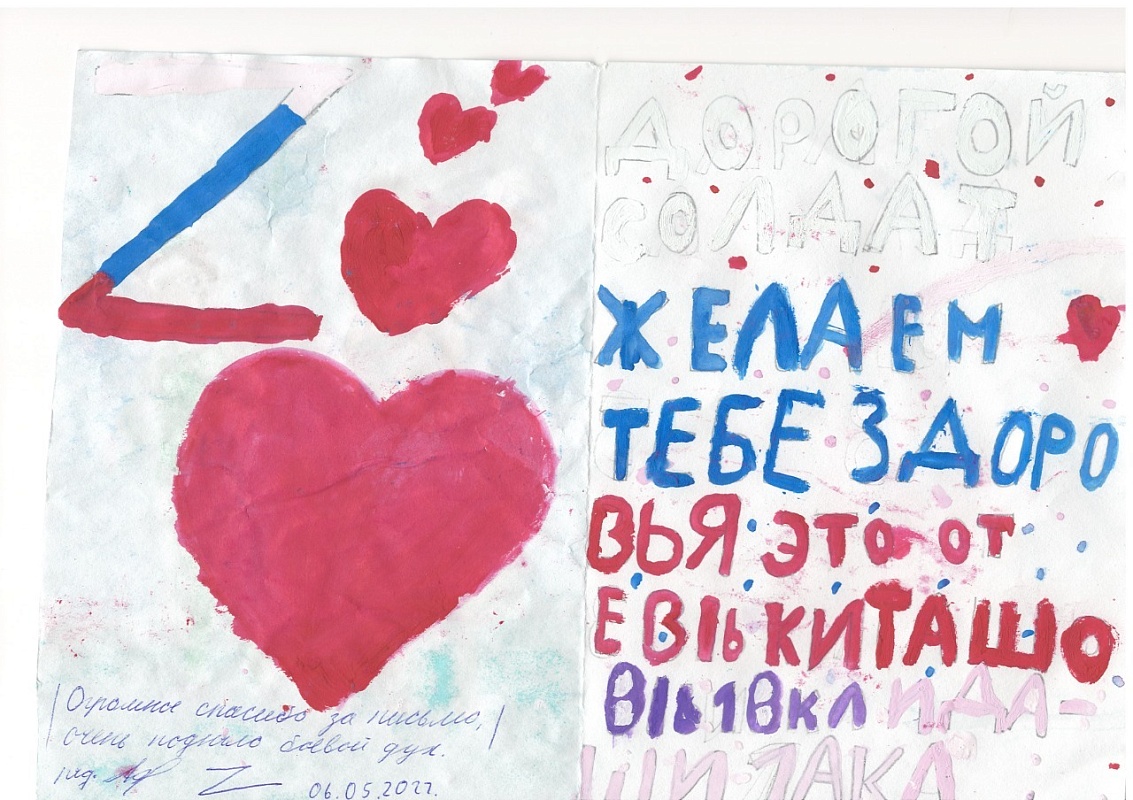 Z
Огромное спасибо за письмо,
очень подняло боевой дух.
ряд. Z
06.05.2022.
ДОРОГОЙ
СОЛДАТ
ЖЕЛАЕМ
ТЕБЕ ЗДОРО
ВЬЯ ЭТО ОТ
ЕВЫ КИТАШО
ВЫ 1В КЛ И ДА-
ШИ ЗАКА